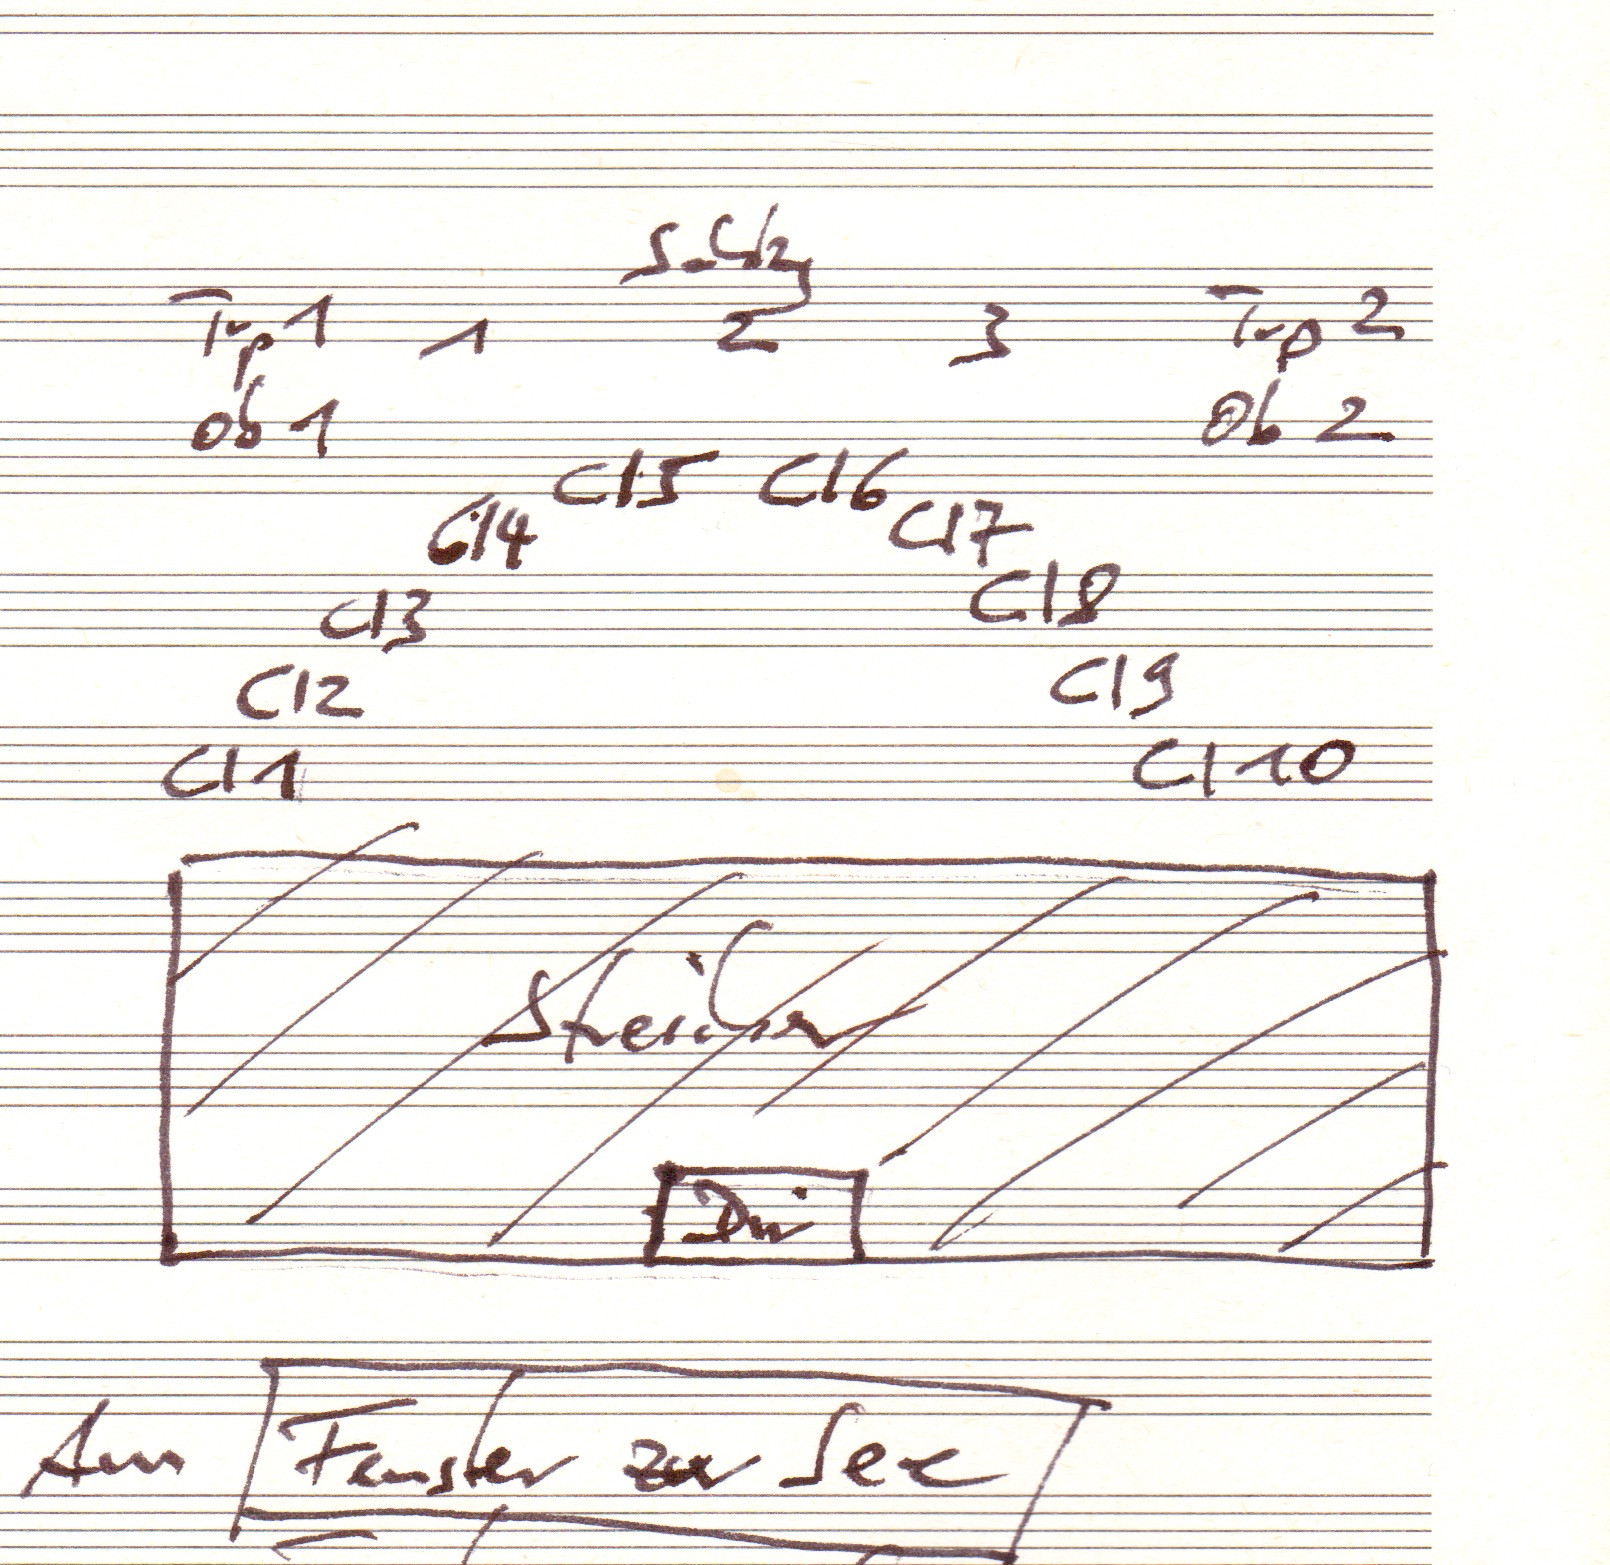 Schlzg
Trp 1 1 2 3 Trp 2
Ob 1 Ob 2
Cl 5 Cl 6
Cl 4 Cl 7
Cl 3 Cl 8
Cl 2 Cl 9
Cl 1 Cl 10
Streicher
Dir
Am Fenster zur See